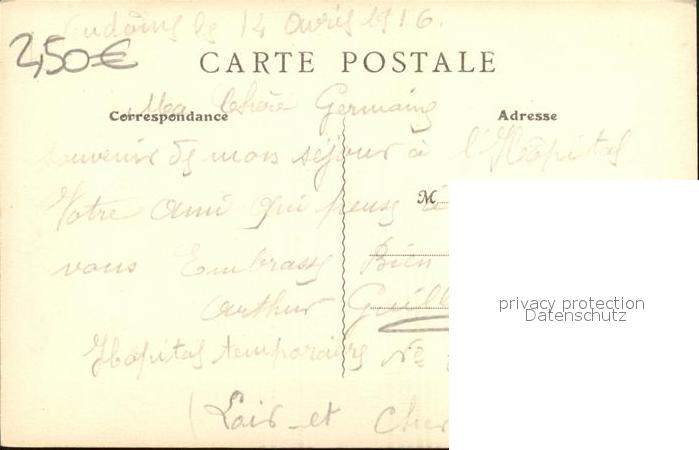 Vendôme le 14 Avril 1916.
2,50€
CARTE POSTALE
Ma Chère Germaine
Correspondance
Adresse
souvenir de mon séjour à l'Hôpital
M
Votre ami qui pense à
vous Embrasse Bien
privacy protection
Datenschutz
Arthur Guill
Hôpital temporaire No
(Loir-et Cher